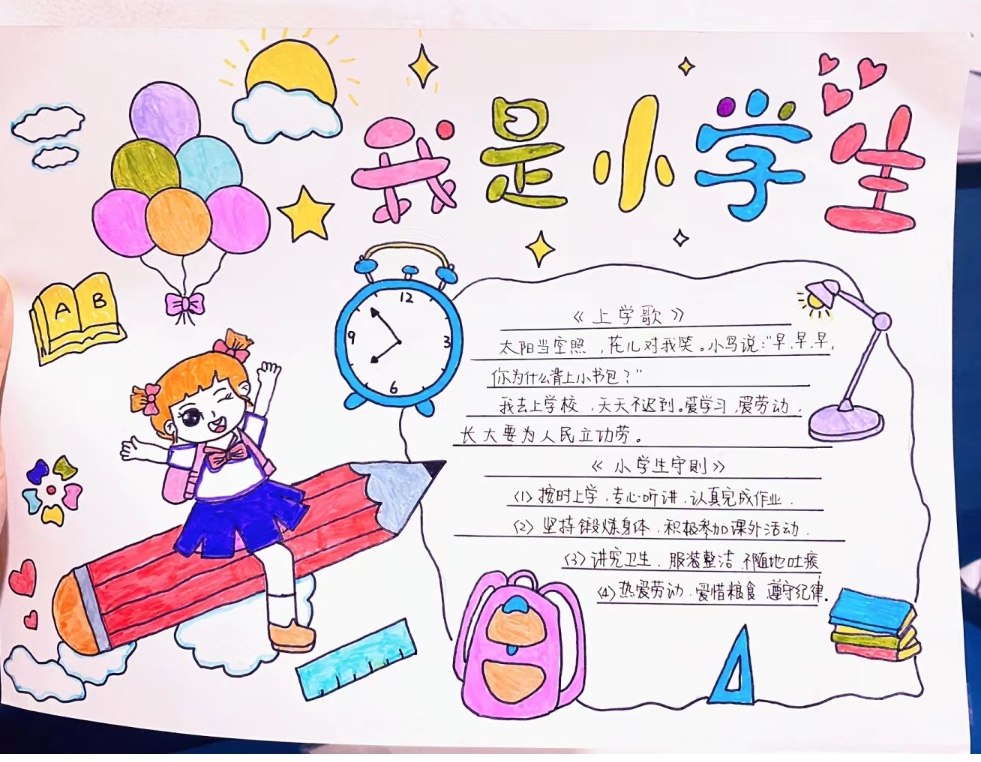 我是小学生
A B
12
9 3
6
《上学歌》
太阳当空照，花儿对我笑。小鸟说："早、早、早，
你为什么背上小书包？"
我去上学校，天天不迟到。爱学习，爱劳动，
长大要为人民立功劳。
《小学生守则》
(1) 按时上学，专心听讲、认真完成作业．
(2) 坚持锻炼身体，积极参加课外活动．
(3) 讲究卫生，服装整洁，不随地吐痰
(4) 热爱劳动，爱惜粮食，遵守纪律。